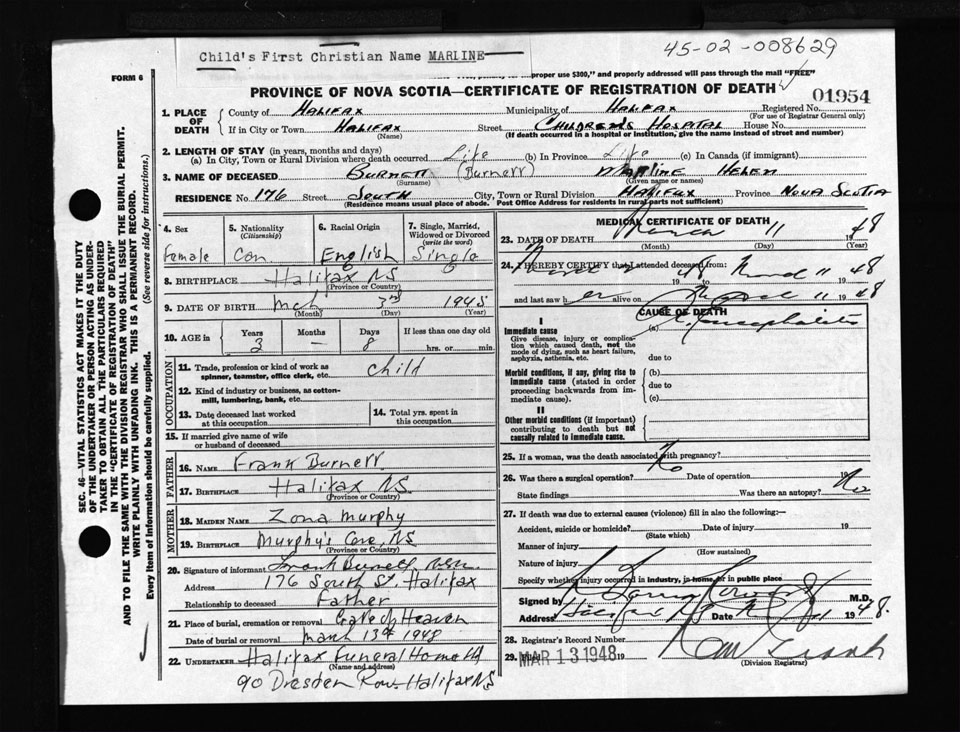 45-02-008629
Child's First Christian Name MARLINE
FORM 6
improper use $300," and properly addressed will pass through the mail "FREE"
PROVINCE OF NOVA SCOTIA—CERTIFICATE OF REGISTRATION OF DEATH
01954
1. PLACE OF DEATH
County of Halifax Municipality of Halifax Registered No.
(For use of Registrar General only)
If in City or Town Halifax Street Children's Hospital House No.
(Name) (If death occurred in a hospital or institution, give the name instead of street and number)
2. LENGTH OF STAY (in years, months and days)
(a) In City, Town or Rural Division where death occurred Life (b) In Province Life (c) In Canada (if immigrant)
3. NAME OF DECEASED Burnett (Burnett) Marline Helen
(Surname) (Given name or names)
RESIDENCE No. 176 Street South City, Town or Rural Division Halifax Province Nova Scotia
(Residence means usual place of abode. Post Office Address for residents in rural parts not sufficient)
4. Sex
Female
5. Nationality
(Citizenship)
Can.
6. Racial Origin
English
7. Single, Married, Widowed or Divorced
(write the word)
Single
8. BIRTHPLACE Halifax NS
(Province or Country)
9. DATE OF BIRTH Mch 3rd 1945
(Month) (Day) (Year)
10. AGE in
Years Months Days If less than one day old
3 — 8 hrs. or min.
OCCUPATION
11. Trade, profession or kind of work as spinner, teamster, office clerk, etc. Child
12. Kind of industry or business, as cotton-mill, lumbering, bank, etc.
13. Date deceased last worked at this occupation
14. Total yrs. spent in this occupation
15. If married give name of wife or husband of deceased
FATHER
16. NAME Frank Burnett
17. BIRTHPLACE Halifax NS
(Province or Country)
MOTHER
18. MAIDEN NAME Zona Murphy
19. BIRTHPLACE Murphy's Cove, NS
(Province or Country)
20. Signature of informant Frank Burnett
Address 176 South St. Halifax
Relationship to deceased Father
21. Place of burial, cremation or removal Gate of Heaven
Date of burial or removal March 13th 1948
22. UNDERTAKER Halifax Funeral Home
(Name and address)
90 Dresden Row. Halifax NS
MEDICAL CERTIFICATE OF DEATH
23. DATE OF DEATH March 11 1948
(Month) (Day) (Year)
24. I HEREBY CERTIFY that I attended deceased from: 48 March 11 1948
and last saw her alive on March 11 1948
CAUSE OF DEATH
I
Immediate cause
Give disease, injury or complication which caused death, not the mode of dying, such as heart failure, asphyxia, asthenia, etc.
(a) Encephalitis
due to
Morbid conditions, if any, giving rise to immediate cause (stated in order proceeding backwards from immediate cause).
(b)
due to
(c)
II
Other morbid conditions (if important) contributing to death but not causally related to immediate cause.
25. If a woman, was the death associated with pregnancy? No
26. Was there a surgical operation? Date of operation 19
State findings Was there an autopsy? No
27. If death was due to external causes (violence) fill in also the following:—
Accident, suicide or homicide? Date of injury 19
(State which)
Manner of injury
(How sustained)
Nature of injury
Specify whether injury occurred in industry, in home, or in public place
Signed by M.D.
Address Halifax Date 1948.
28. Registrar's Record Number
29. MAR 13 1948 19
(Division Registrar)
SEC. 46—VITAL STATISTICS ACT MAKES IT THE DUTY OF THE UNDERTAKER OR PERSON ACTING AS UNDERTAKER TO OBTAIN ALL THE PARTICULARS REQUIRED IN THE "CERTIFICATE OF REGISTRATION OF DEATH" AND TO FILE THE SAME WITH THE DIVISION REGISTRAR WHO SHALL ISSUE THE BURIAL PERMIT.
WRITE PLAINLY WITH UNFADING INK. THIS IS A PERMANENT RECORD.
Every item of Information should be carefully supplied. (See reverse side for instructions.)